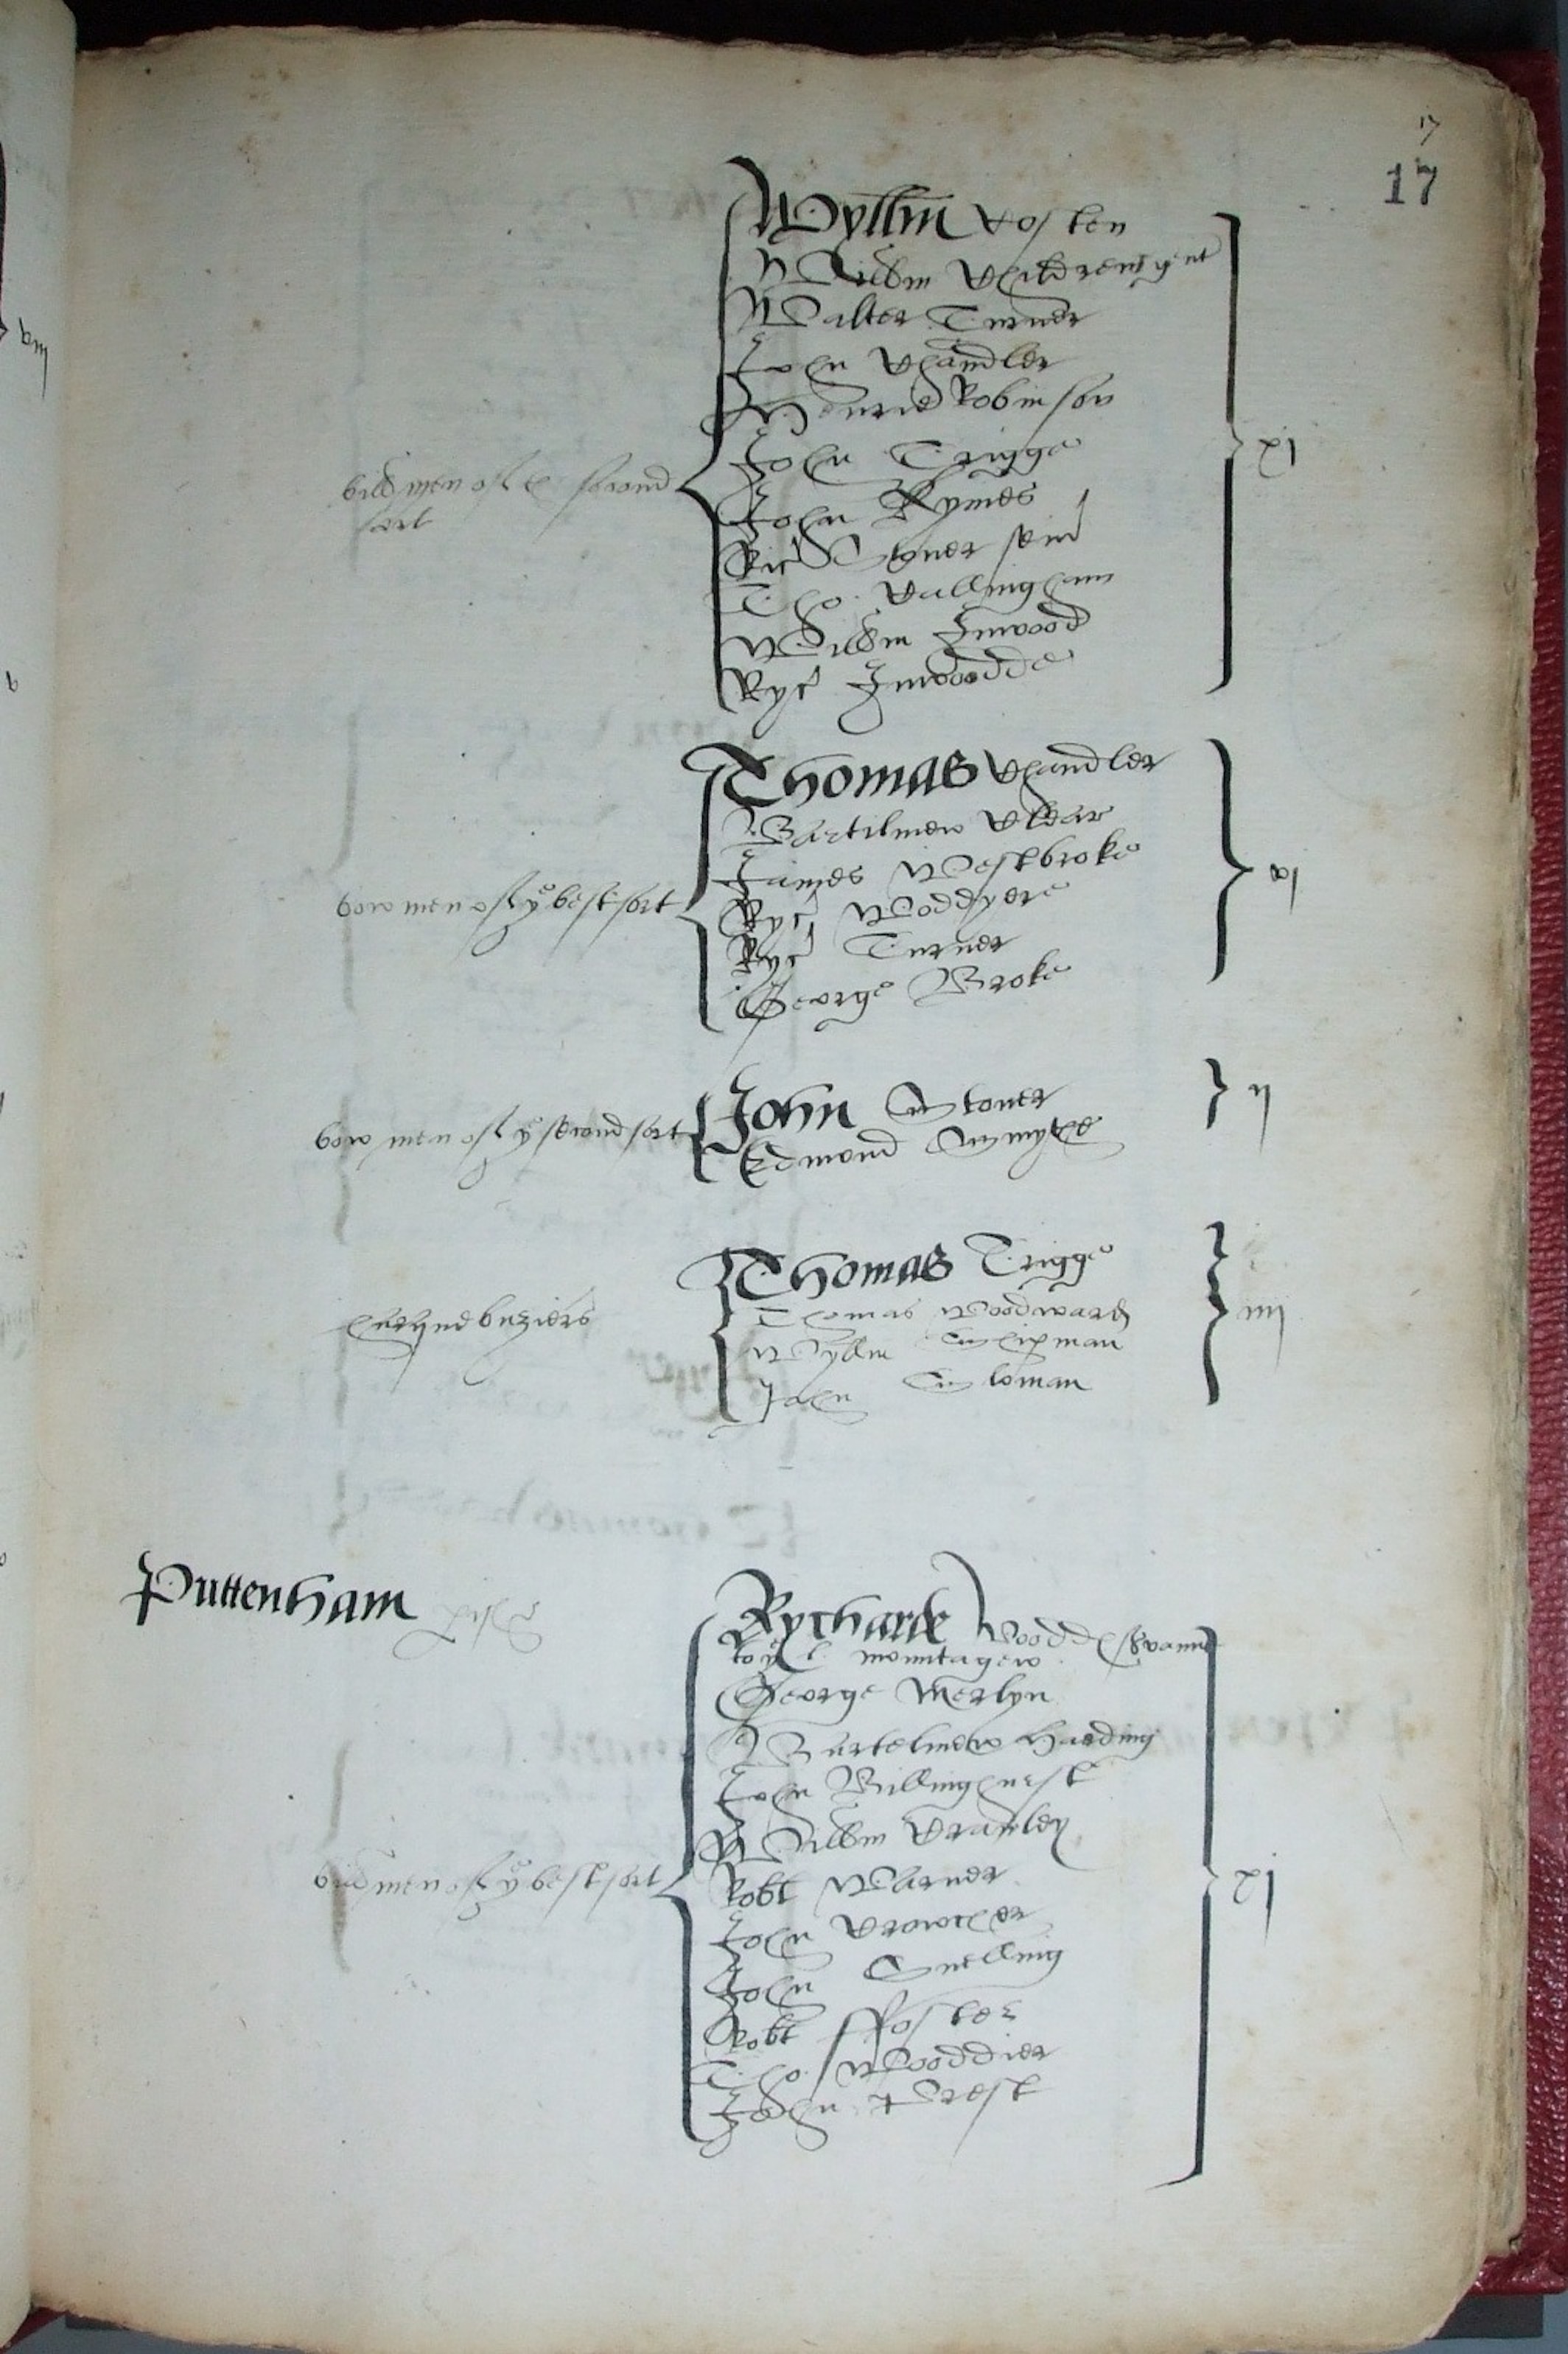 17
billmen of the second
sort
Wyllm Costen
Willm Children gent
Walter Turner
John Chandler
Henrie Robinson
John Trigge
John Rymes
Ric Stoner seni
Tho. Vallingham
Willm Inwood
Ryc Inwoodde
xj
bowmen of ye best sort
Thomas Chandler
Bartilmew Clear
James Westbroke
Ryc Woddyere
Ryc Turner
George Broke
vj
bow men of ye second sort
John Stoner
Edmond Smythe
ij
harquebuziers
Thomas Trigge
Thomas Woodward
Wyllm Shipman
John Sloman
iiij
Puttenham pish
billmen of ye best sort
Rycharde Woodde servannt
to ye L. Mountagew
George Merlyn
Bartelmew Harding
John Billinghurst
Willm Cranley
Robt Warner
John Crowcher
John Snelling
Robt ffoster
Tho. Wooddier
John Prest
xj